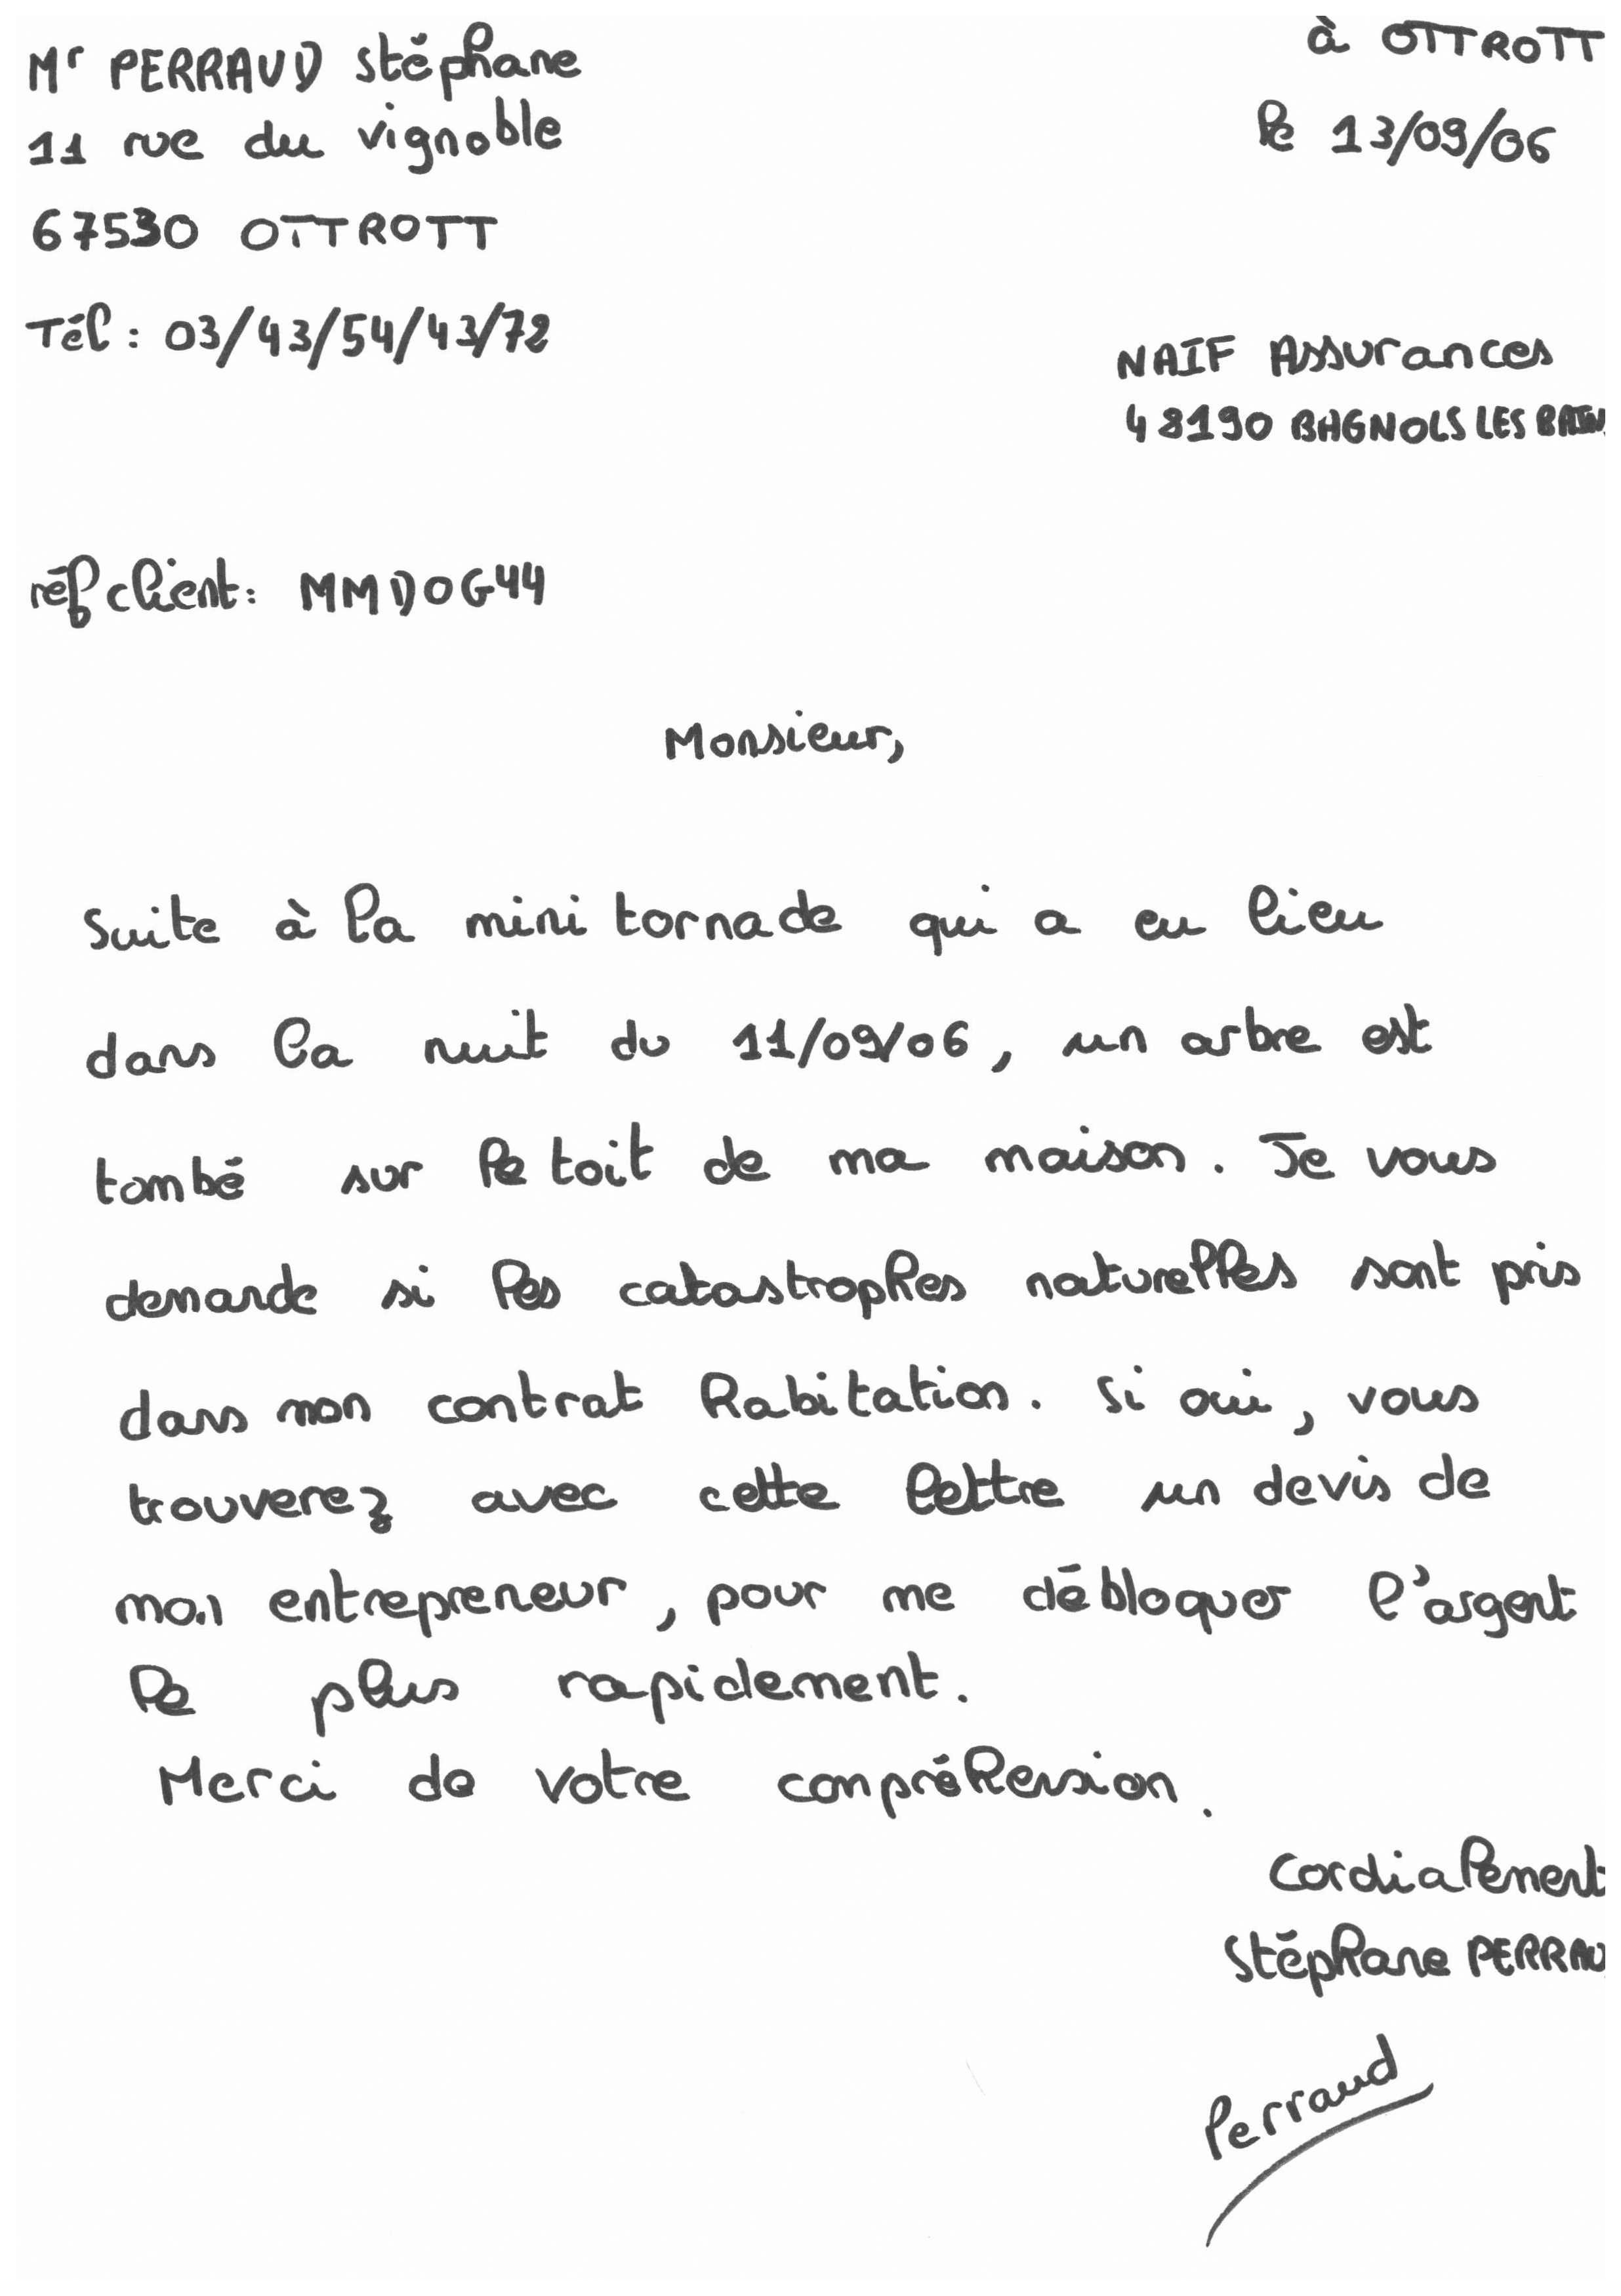 Mr PERRAUD Stéphane
11 rue du vignoble
67530 OTTROTT
Tél : 03/43/54/43/72
à OTTROTT
le 13/09/06
NAIF Assurances
48190 BAGNOLS LES BAIN
réf client : MMDOG44
Monsieur,
Suite à la mini tornade qui a eu lieu
dans la nuit du 11/09/06, un arbre est
tombé sur le toit de ma maison. Je vous
demande si les catastrophes naturelles sont pris
dans mon contrat habitation. Si oui, vous
trouverez avec cette lettre un devis de
mon entrepreneur, pour me débloquer l'argent
le plus rapidement.
Merci de votre conpréhension.
Cordialement
Stéphane PERRAU
Perraud